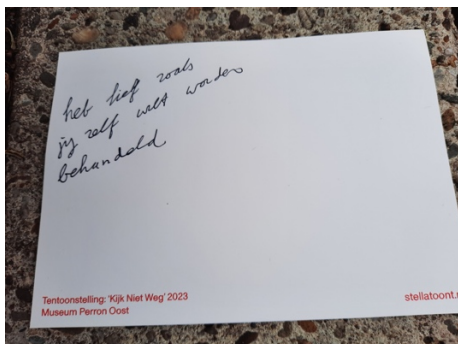 heb lief zoals
jij zelf wilt worden
behandeld
Tentoonstelling: 'Kijk Niet Weg' 2023
Museum Perron Oost
stellatoont.